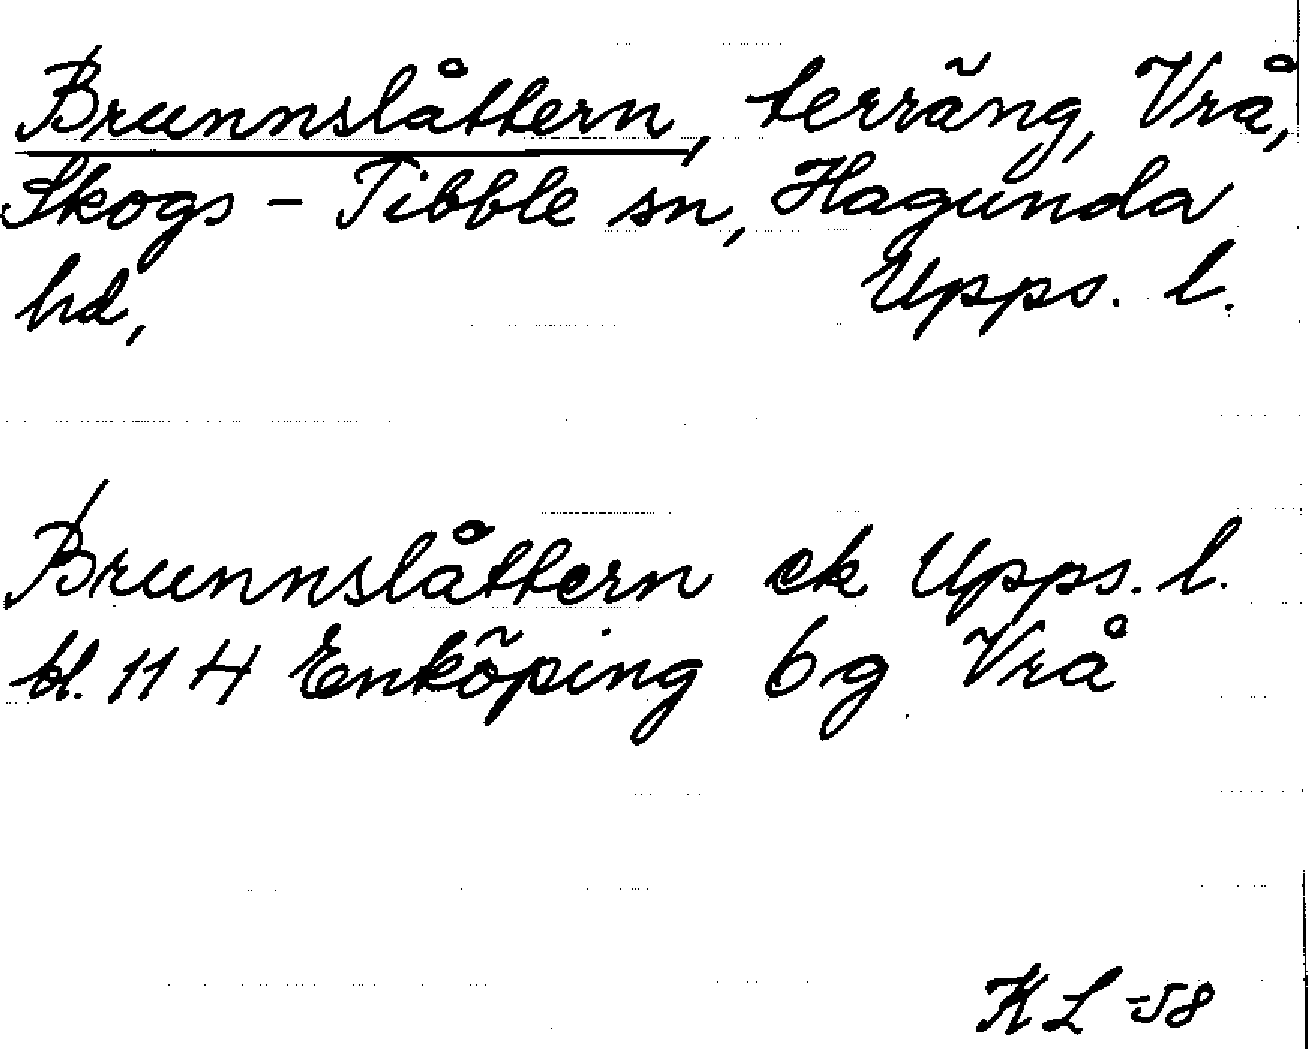 Brunnslåttern, terräng, Vrå,
Skogs-Tibble sn, Hagunda
hd, Upps. l.
Brunnslåttern ek Upps. l.
bl. 11 H Enköping 6g Vrå
KL -58